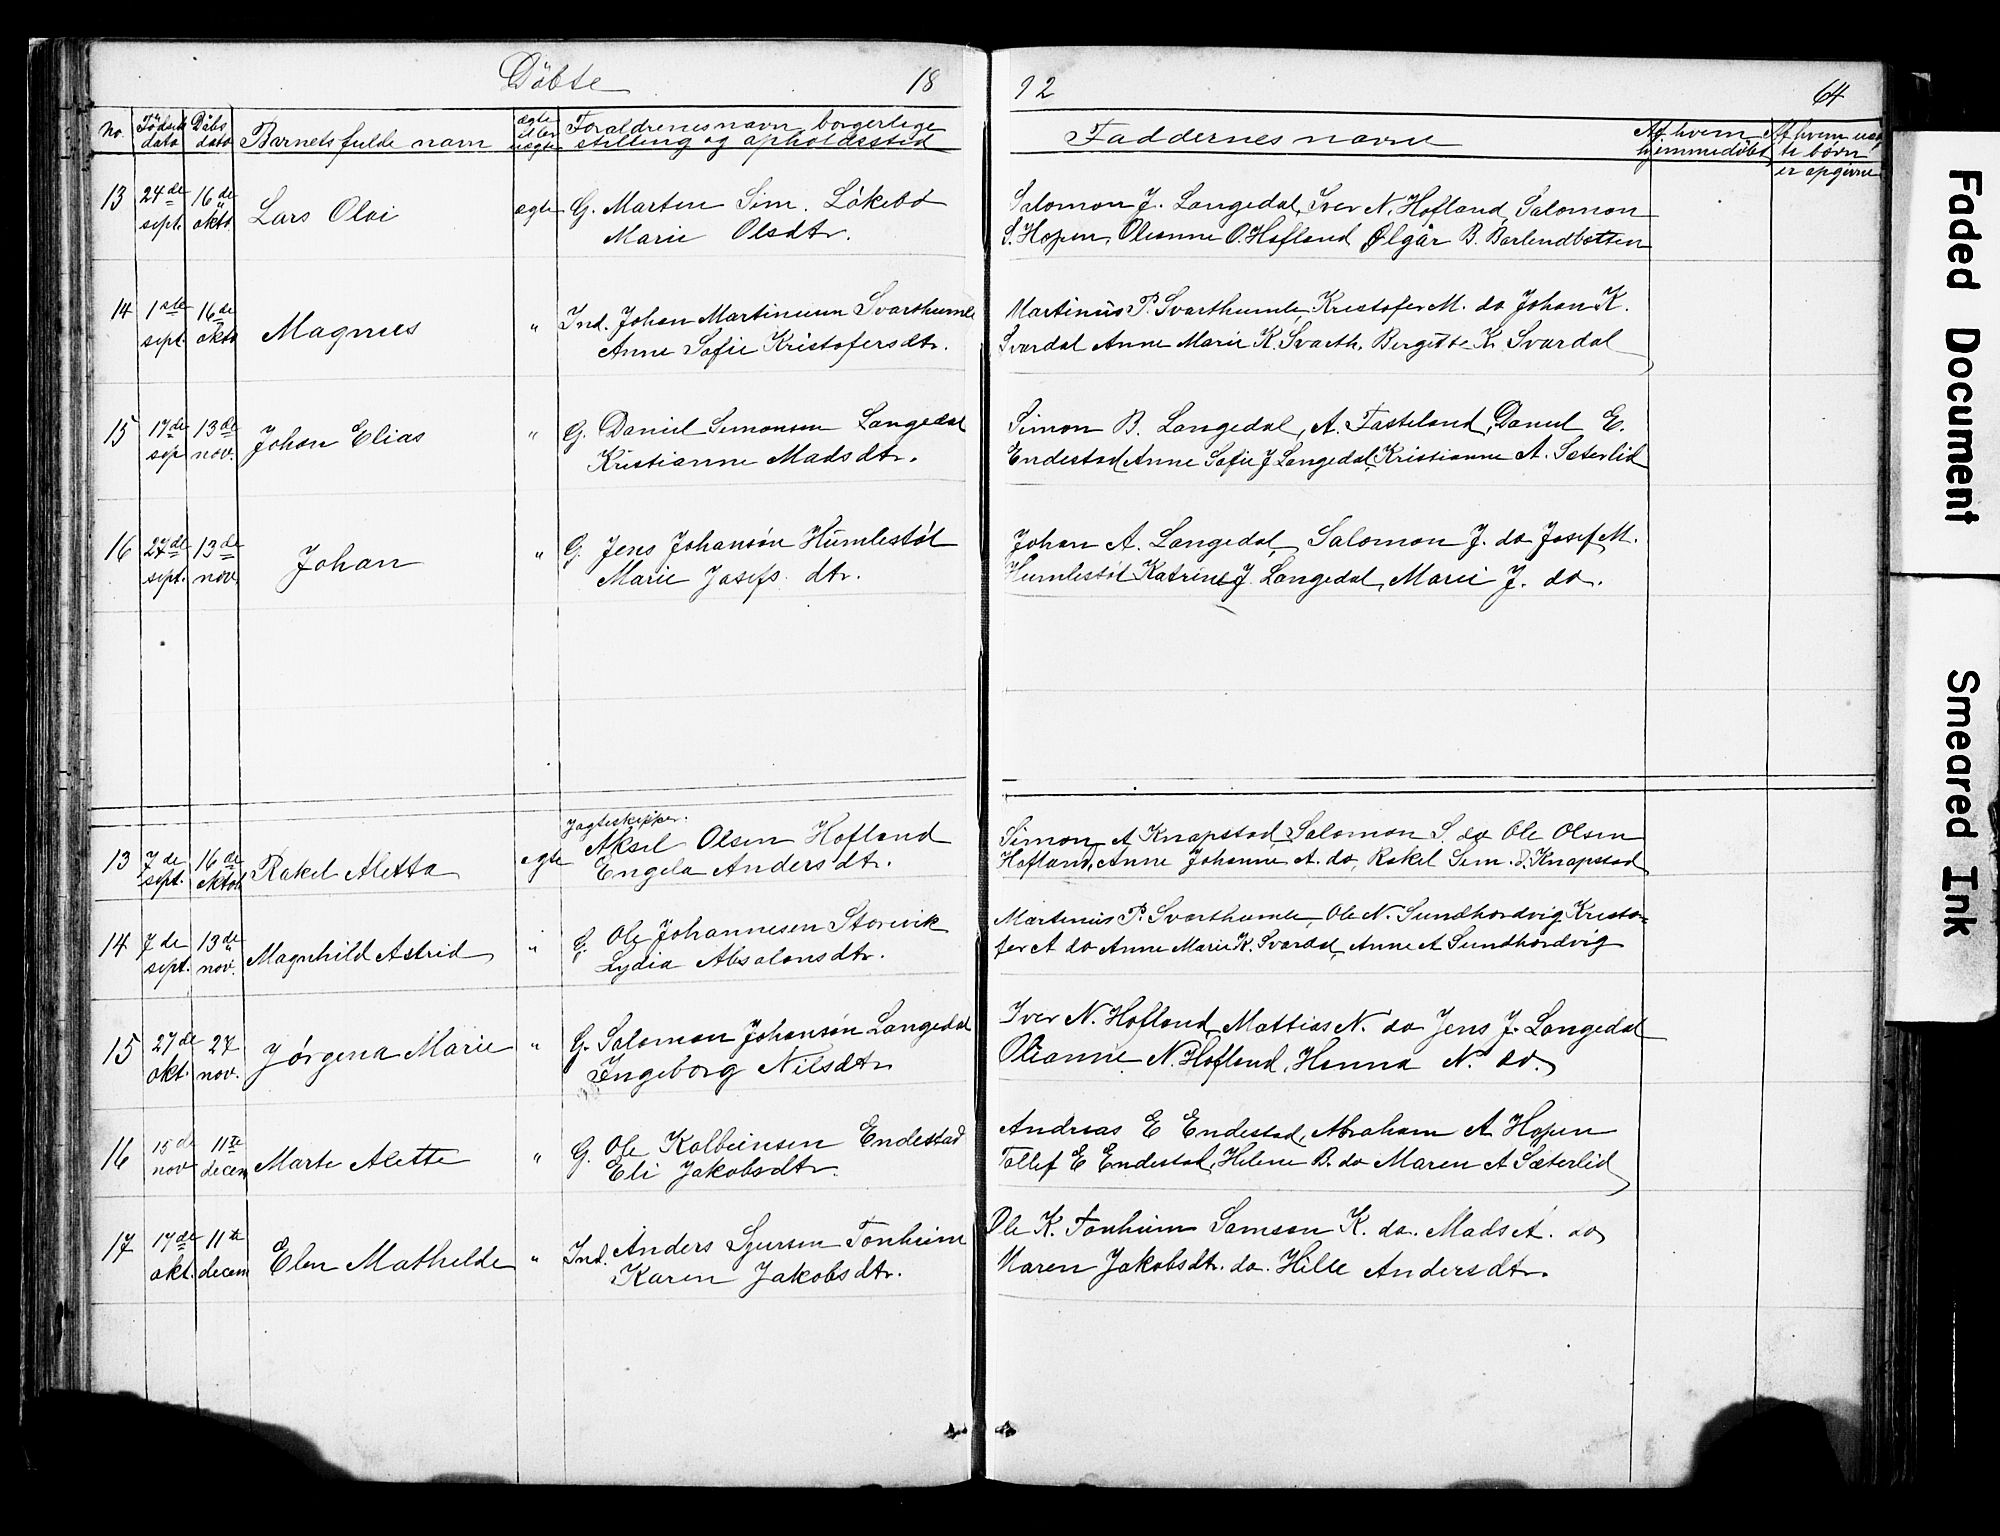 Döbte 18
92 64
No. Födsels dato Döbs dato Barnets fulde navn ægte eller uægte Foraldrenes navn, borgerlige stilling og opholdssted
Faddernes navne Af hvem hjemmedöbt Af hvem uægte börn er opgivne
13 24de sept. 16de okto. Lars Olai ægte G. Marten Sim. Lökebö
Marie Olsdtr.
Salomon J. Langedal, Iver N. Hofland, Salomon
S. Hopen, Olianne O. Hofland Ølgår B. Barlindbotten
14 1ste sept. 16de okto Magnus " Ind. Johan Martinium Svarthumle
Anne Sofie Kristofersdtr.
Martinius P. Svarthumle, Kristofer M. do Johan K.
Svardal Anne Marie K. Svarth. Bergitte K. Svardal
15 17de sep 13de nov. Johan Elias " G. Daniel Simonsen Langedal
Kristianne Madsdtr.
Simon B. Langedal, A. Fasteland, Daniel E.
Endestad, Anne Sofie J Langedal, Kristianne A. Sæterlid
16 27de sept. 13de nov. Johan " G. Jens Johansön Humlestöl
Marie Josefs. dtr.
Johan A. Langedal, Salomon J. do Josef M.
Humlestöl Katrine J. Langedal, Marie J. do.
13 7de sept. 16de oktob Rakel Aletta egte Jagteskipper. Aksel Olsen Hofland
Engela Andersdtr.
Simon A Knapstad, Salomon S. do Ole Olsen
Hofland, Anne Johanne A. do, Rakel Sim. d. Knapstad
14 7de sept. 13de nov. Magnhild Astrid " G. Ole Johannesen Storevik
Lydia Absalonsdtr.
Martinius P. Svarthumle, Ole N. Sundhordvig Kristo-
fer A do Anne Marie K. Svardal, Anne A Sundhordvig
15 27de okt. 27 nov. Jörgena Marie " G. Salomon Johansön Langedal
Ingeborg Nilsdtr
Iver N. Hofland, Mattias N. do Jens J. Langedal
Olianne N. Hofland, Hanna N. do.
16 15de nov 11te decem Marte Alette " G. Ole Kolbeinsen Endestad
Eli Jakobsdtr.
Andreas E Endestad, Abraham A Hopen
Tollef E Endestad, Helene B. do Maren A Sæterlid
17 17de okt. 11te decem Elen Mathilde " Ind. Anders Sjursen Tonheim
Karen Jakobsdtr.
Ole K. Tonheim Samson K. do. Mads A. do
Maren Jakobsdtr. do. Hille Andersdtr.
Faded Document
Smeared Ink